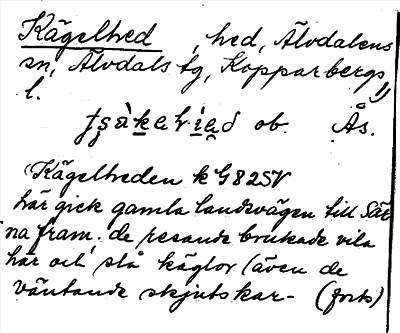 Kägelhed, hed, Älvdalens
sn, Älvdals tg, Kopparbergs
l.
ob. Ås.
Kägelheden k G825V
här gick gamla landsvägen till Sär-
na fram; de resande brukade vila
här och slå käglor (även de
väntande skjutskar- (forts)